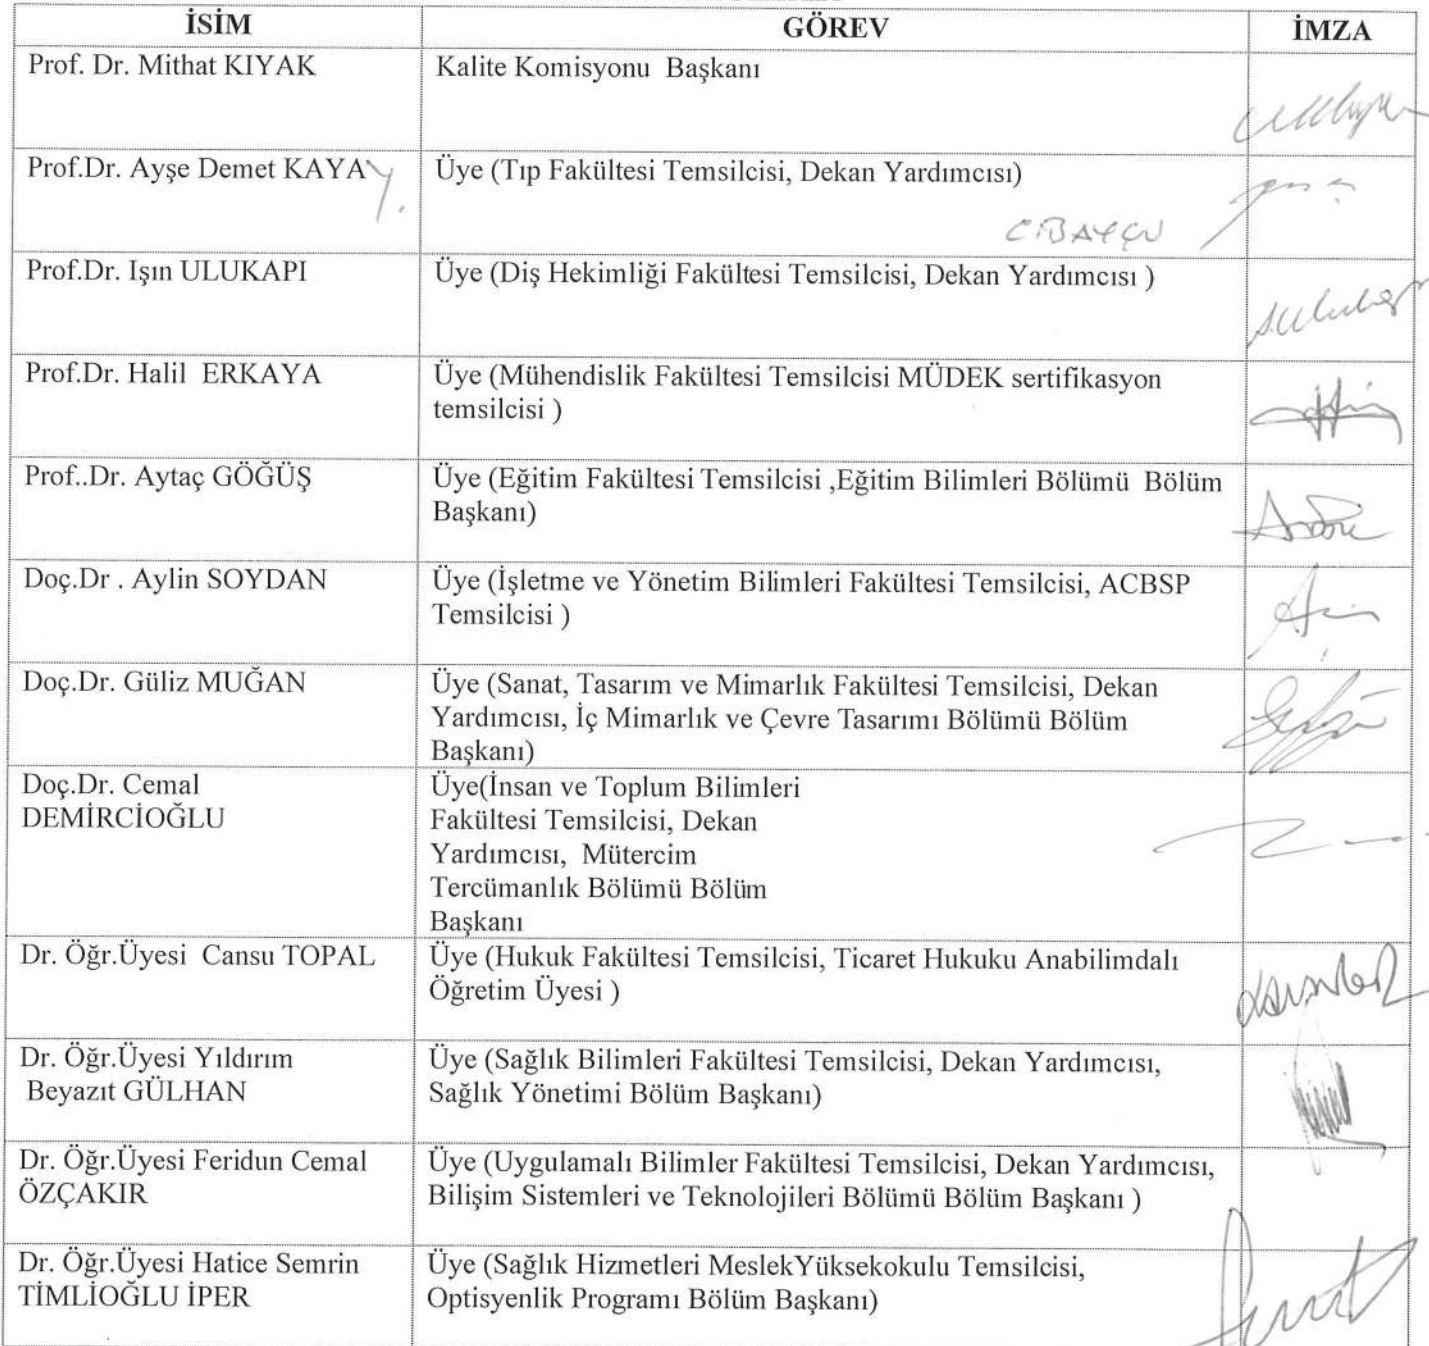 İSİM GÖREV İMZA
Prof. Dr. Mithat KIYAK Kalite Komisyonu Başkanı
Prof.Dr. Ayşe Demet KAYA Üye (Tıp Fakültesi Temsilcisi, Dekan Yardımcısı)
Y.
Prof.Dr. Işın ULUKAPI Üye (Diş Hekimliği Fakültesi Temsilcisi, Dekan Yardımcısı )
Prof.Dr. Halil ERKAYA Üye (Mühendislik Fakültesi Temsilcisi MÜDEK sertifikasyon
temsilcisi )
Prof..Dr. Aytaç GÖĞÜŞ Üye (Eğitim Fakültesi Temsilcisi ,Eğitim Bilimleri Bölümü Bölüm
Başkanı)
Doç.Dr . Aylin SOYDAN Üye (İşletme ve Yönetim Bilimleri Fakültesi Temsilcisi, ACBSP
Temsilcisi )
Doç.Dr. Güliz MUĞAN Üye (Sanat, Tasarım ve Mimarlık Fakültesi Temsilcisi, Dekan
Yardımcısı, İç Mimarlık ve Çevre Tasarımı Bölümü Bölüm
Başkanı)
Doç.Dr. Cemal Üye(İnsan ve Toplum Bilimleri
DEMİRCİOĞLU Fakültesi Temsilcisi, Dekan
Yardımcısı, Mütercim
Tercümanlık Bölümü Bölüm
Başkanı
Dr. Öğr.Üyesi Cansu TOPAL Üye (Hukuk Fakültesi Temsilcisi, Ticaret Hukuku Anabilimdalı
Öğretim Üyesi )
Dr. Öğr.Üyesi Yıldırım Üye (Sağlık Bilimleri Fakültesi Temsilcisi, Dekan Yardımcısı,
Beyazıt GÜLHAN Sağlık Yönetimi Bölüm Başkanı)
Dr. Öğr.Üyesi Feridun Cemal Üye (Uygulamalı Bilimler Fakültesi Temsilcisi, Dekan Yardımcısı,
ÖZÇAKIR Bilişim Sistemleri ve Teknolojileri Bölümü Bölüm Başkanı )
Dr. Öğr.Üyesi Hatice Semrin Üye (Sağlık Hizmetleri MeslekYüksekokulu Temsilcisi,
TİMLİOĞLU İPER Optisyenlik Programı Bölüm Başkanı)